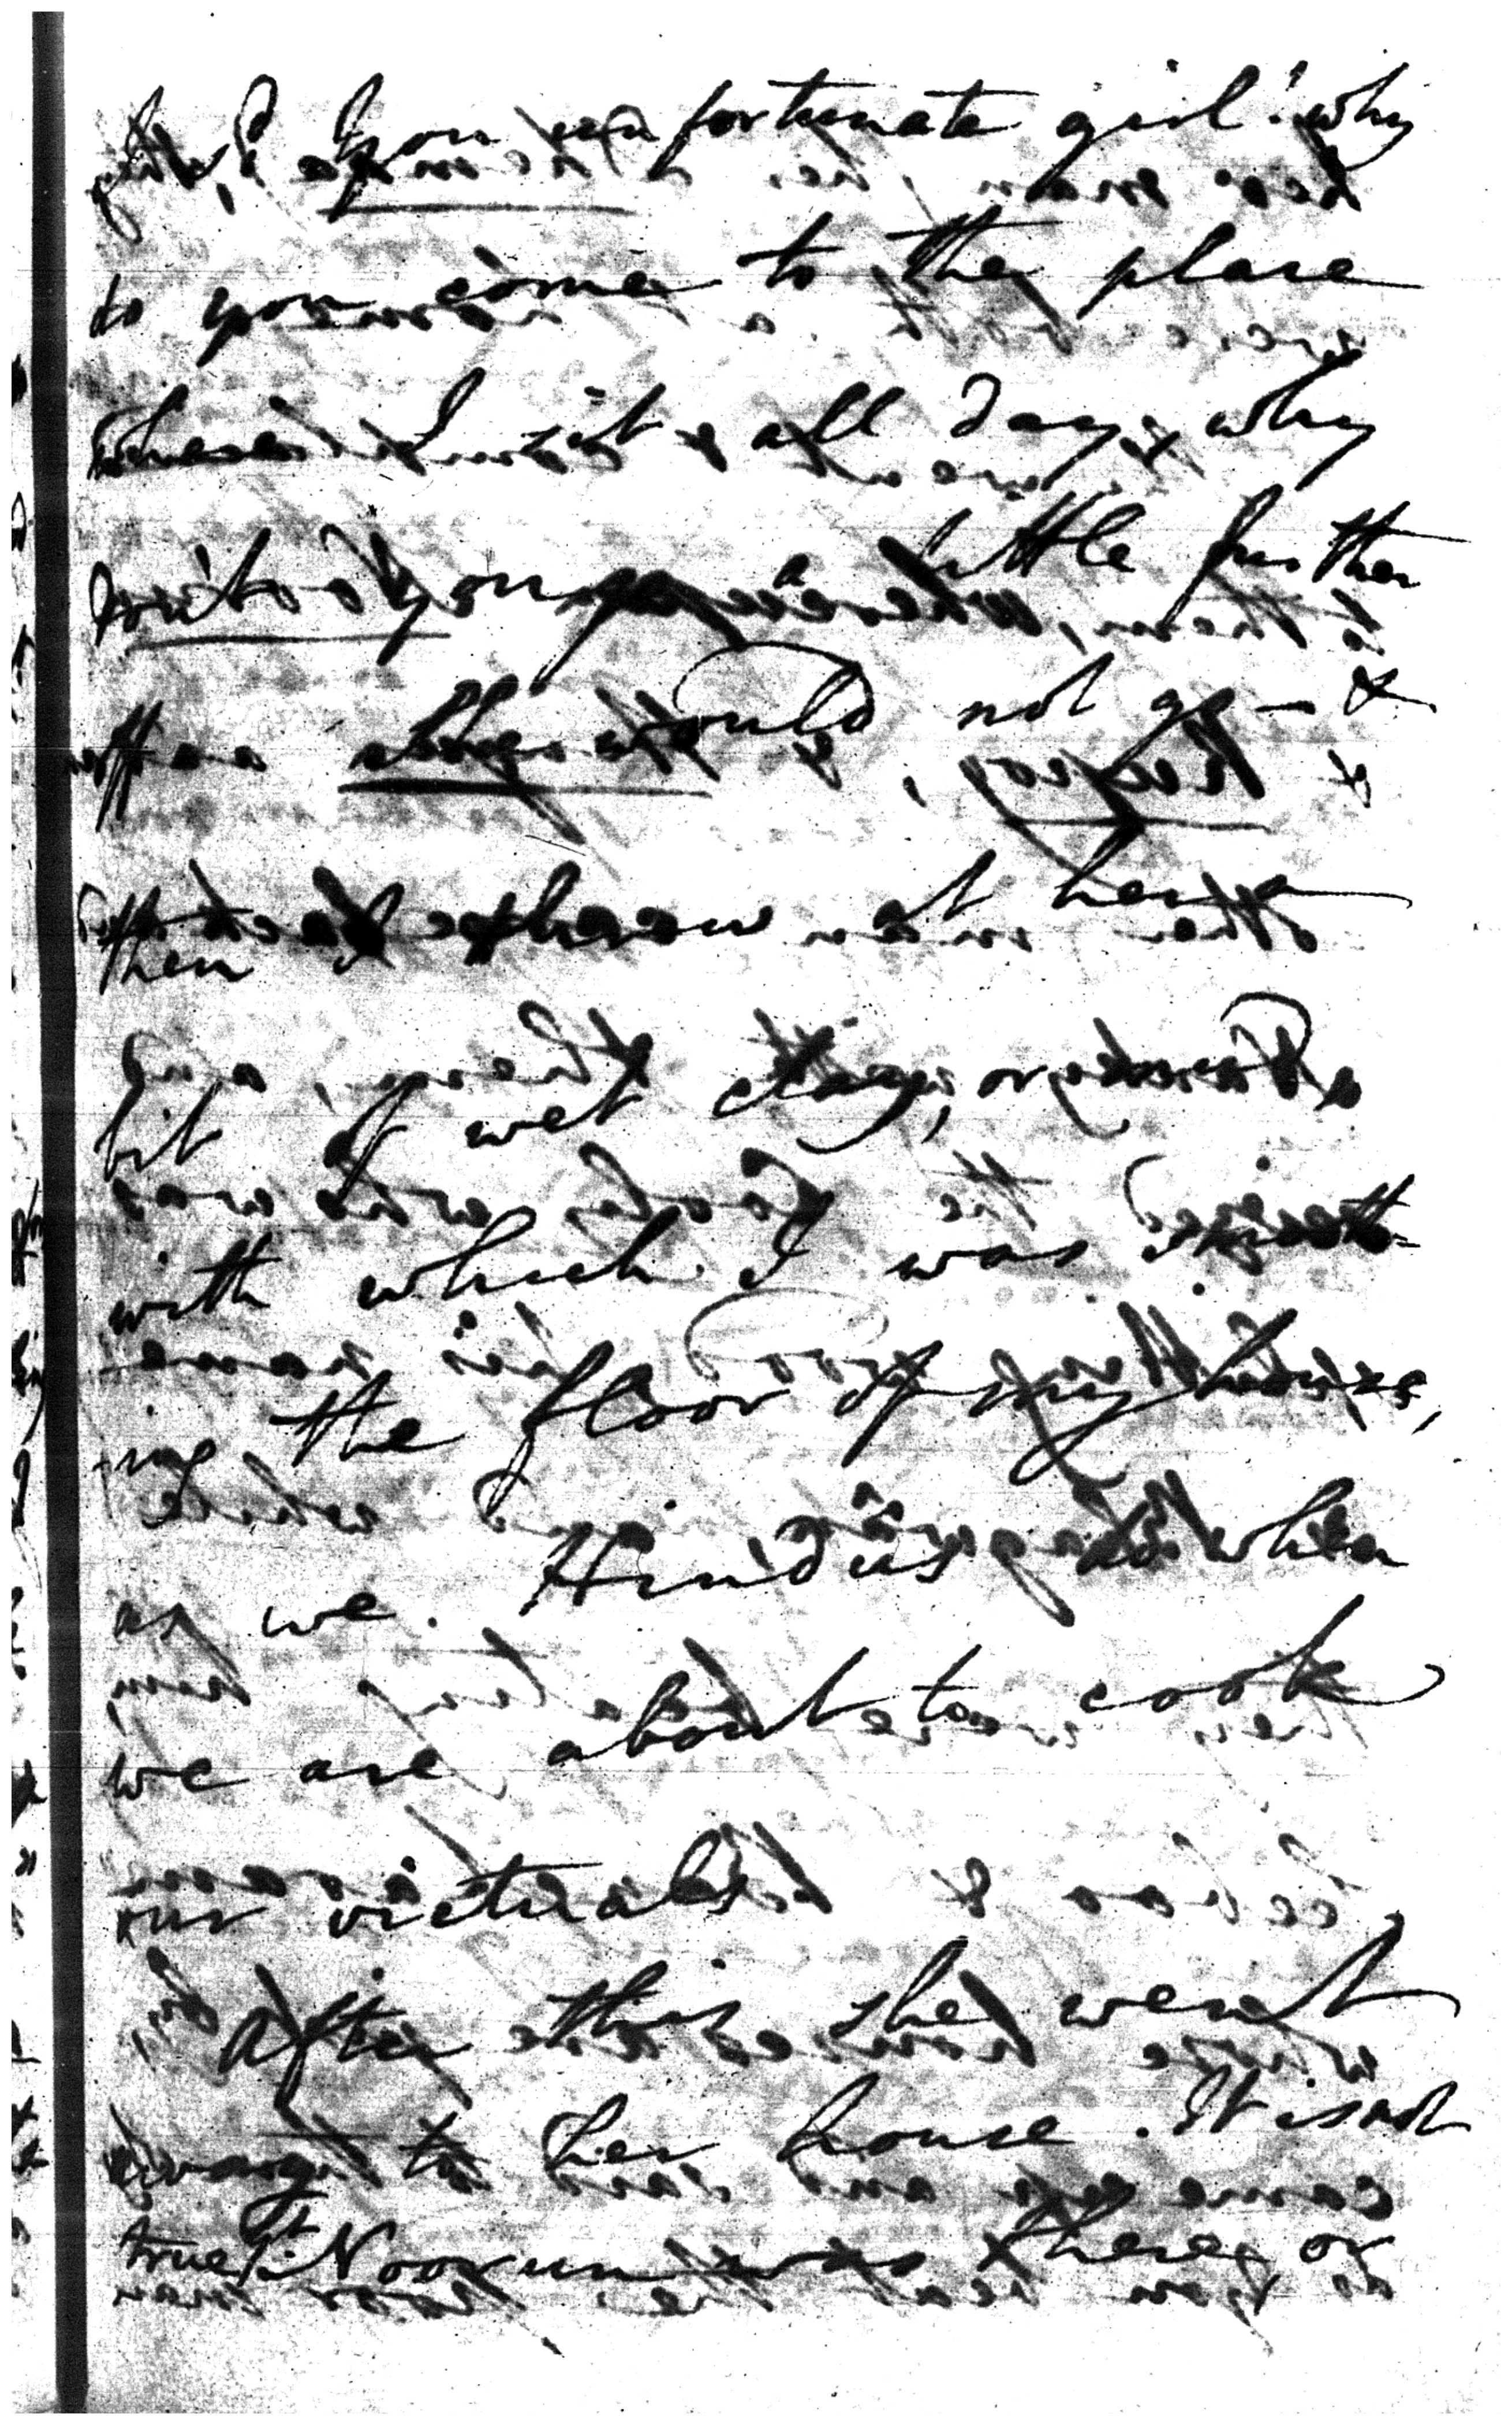 you unfortunate girl! why
do you come to the place
where I sit all day, why
don't you go a little further
off she would not go - &
then I threw at her a
bit of wet clay, or mud
with which I was
-ing the floor of my house,
as we Hindus do when
we are about to cook
our victuals
After this she went
away to her house. It is not
true tt Noorun was there, or